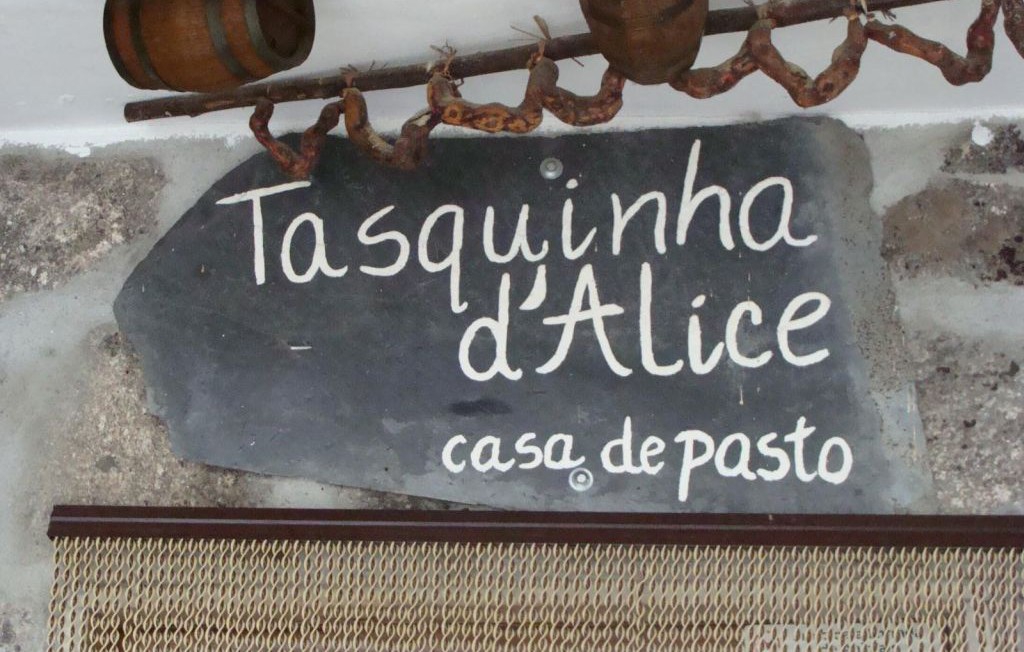 Tasquinha
d'Alice
casa de pasto